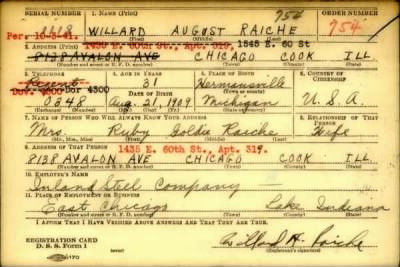 SERIAL NUMBER 1. NAME (Print) 754 ORDER NUMBER
WILLARD AUGUST RAICHE 754
Per. 10-3-41. (First) (Middle) (Last)
2. ADDRESS (Print) 1435 E. 60th St., Apt. 319, 1545 E. 60 St
8138 AVALON AVE CHICAGO COOK ILL.
(Number and street or R. F. D. number) (Town) (County) (State)
3. TELEPHONE 4. AGE IN YEARS 5. PLACE OF BIRTH 6. COUNTRY OF CITIZENSHIP
31 Hermansville
4300 DATE OF BIRTH
0848 Aug. 21, 1909 Michigan U.S.A.
7. NAME OF PERSON WHO WILL ALWAYS KNOW YOUR ADDRESS 8. RELATIONSHIP OF THAT PERSON
Mrs. Ruby Goldie Raiche Wife
(Mr., Mrs., Miss) (First) (Middle) (Last)
9. ADDRESS OF THAT PERSON 1435 E. 60th St., Apt. 319.
8138 AVALON AVE CHICAGO COOK ILL.
(Number and street or R. F. D. number) (Town) (County) (State)
10. EMPLOYER'S NAME
Inland Steel Company
11. PLACE OF EMPLOYMENT OR BUSINESS
East Chicago Lake Indiana
(Number and street or R. F. D. number) (Town) (County) (State)
I AFFIRM THAT I HAVE VERIFIED ABOVE ANSWERS AND THAT THEY ARE TRUE.
REGISTRATION CARD
D. S. S. Form 1 Willard A. Raiche
(Registrant's signature)